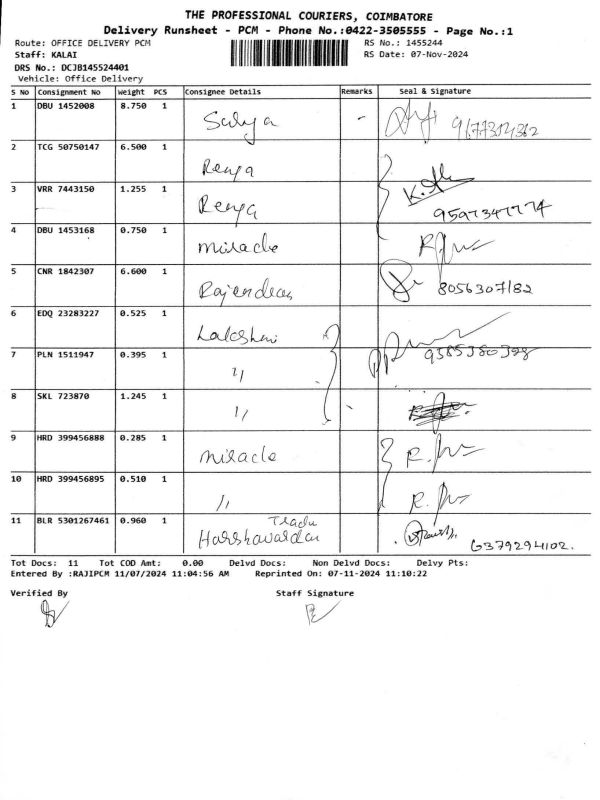 THE PROFESSIONAL COURIERS, COIMBATORE
Delivery Runsheet - PCM - Phone No.:0422-3505555 - Page No.:1
Route: OFFICE DELIVERY PCM RS No.: 1455244
Staff: KALAI RS Date: 07-Nov-2024
DRS No.: DCJB145524401
Vehicle: Office Delivery
S No Consignment No Weight PCS Consignee Details Remarks Seal & Signature
1 DBU 1452008 8.750 1 Satya -
2 TCG 50750147 6.500 1 Renya
3 VRR 7443150 1.255 1 Renya 9597347774
4 DBU 1453168 0.750 1 miracle
5 CNR 1842307 6.600 1 Rajendran 8056307182
6 EDQ 23283227 0.525 1
7 PLN 1511947 0.395 1 " 9385380398
8 SKL 723870 1.245 1 "
9 HRD 399456888 0.285 1 miracle
10 HRD 399456895 0.510 1 "
11 BLR 5301267461 0.960 1 Harshavardan 6379294102.
Tot Docs: 11 Tot COD Amt: 0.00 Delvd Docs: Non Delvd Docs: Delvy Pts:
Entered By :RAJIPCM 11/07/2024 11:04:56 AM Reprinted On: 07-11-2024 11:10:22
Verified By Staff Signature